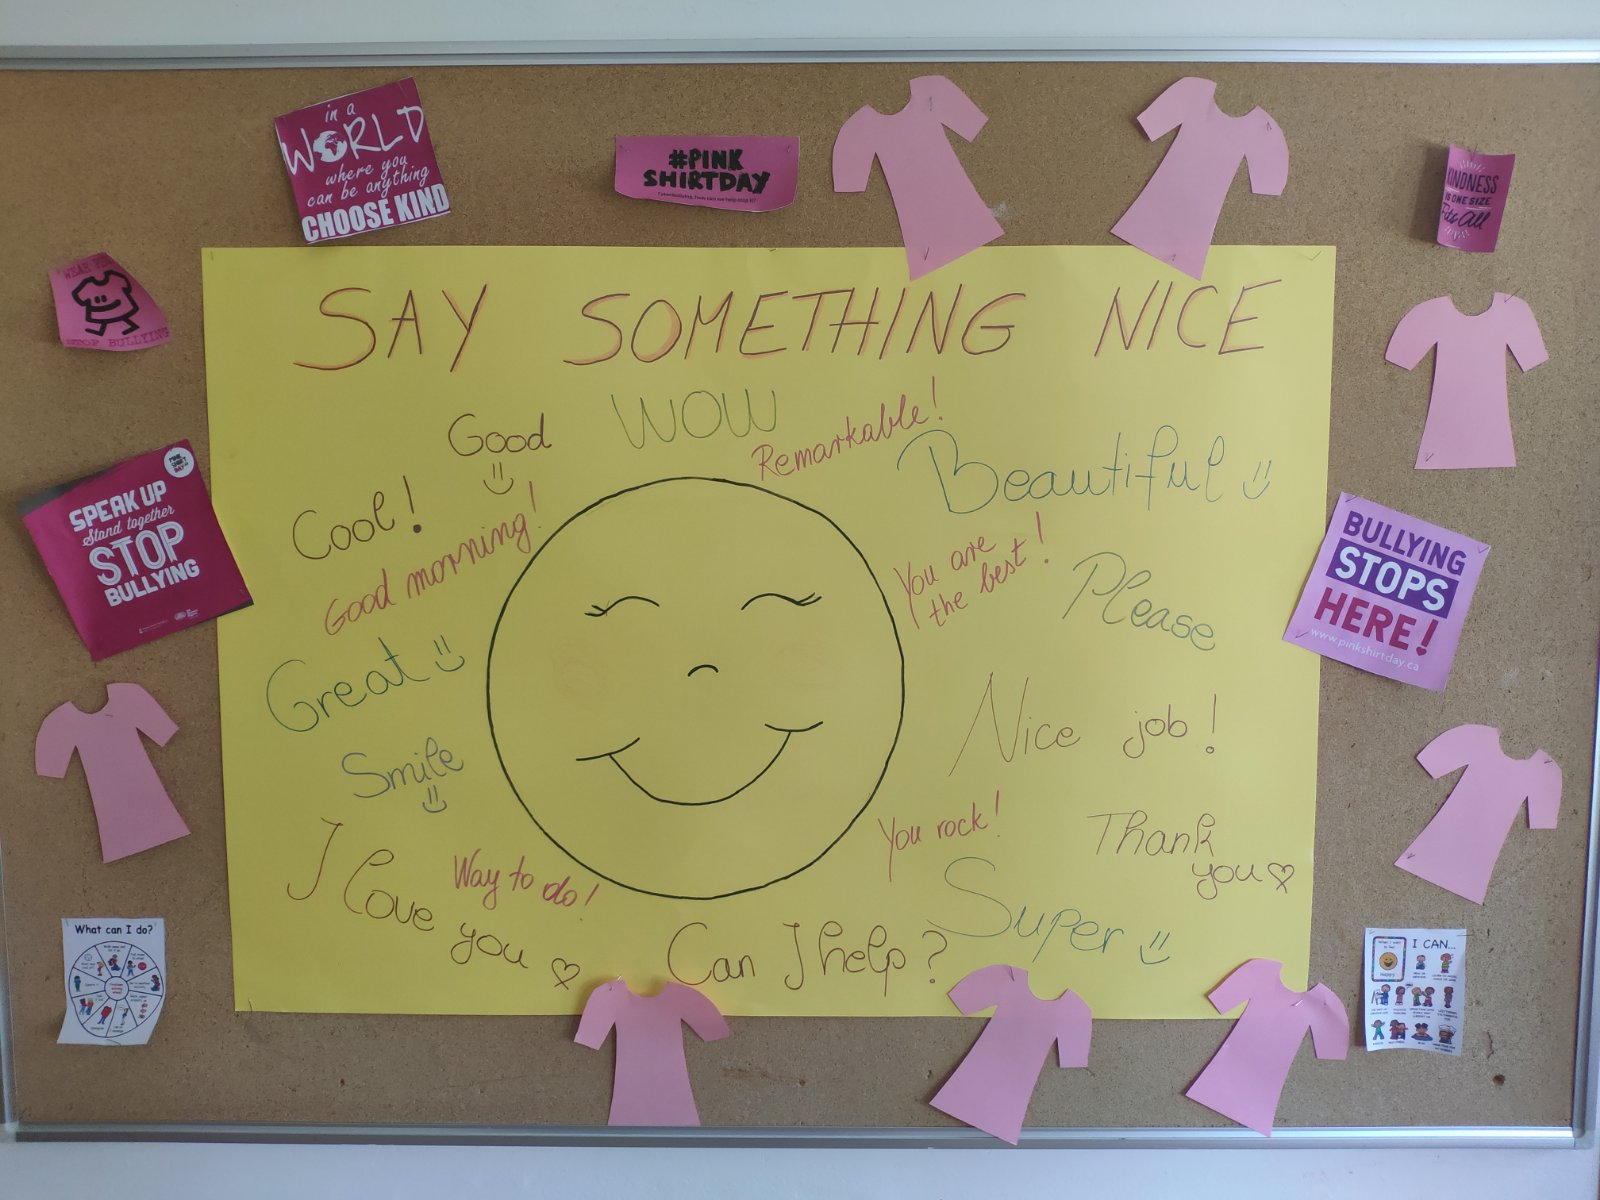 in a
WORLD
where you
can be anything
CHOOSE KIND
#PINK
SHIRTDAY
KINDNESS
IS ONE SIZE
Fits All
STOP BULLYING
SPEAK UP
Stand together
STOP
BULLYING
PINK
SHIRT
DAY
BULLYING
STOPS
HERE!
www.pinkshirtday.ca
SAY SOMETHING NICE
WOW
Good
Remarkable!
Beautiful
Cool!
Good morning!
You are
the best!
Please
Great
Nice job!
Smile
You rock!
Thank
you
I love
you
Way to do!
Super
Can I help?
What can I do?
I CAN...
Happy